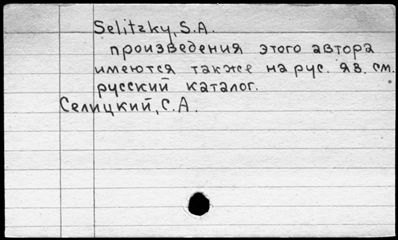 Selitzky, S.A.
произведения этого автора
имеются также на рус. яз. см.
русский каталог.
Селицкий, С.А.